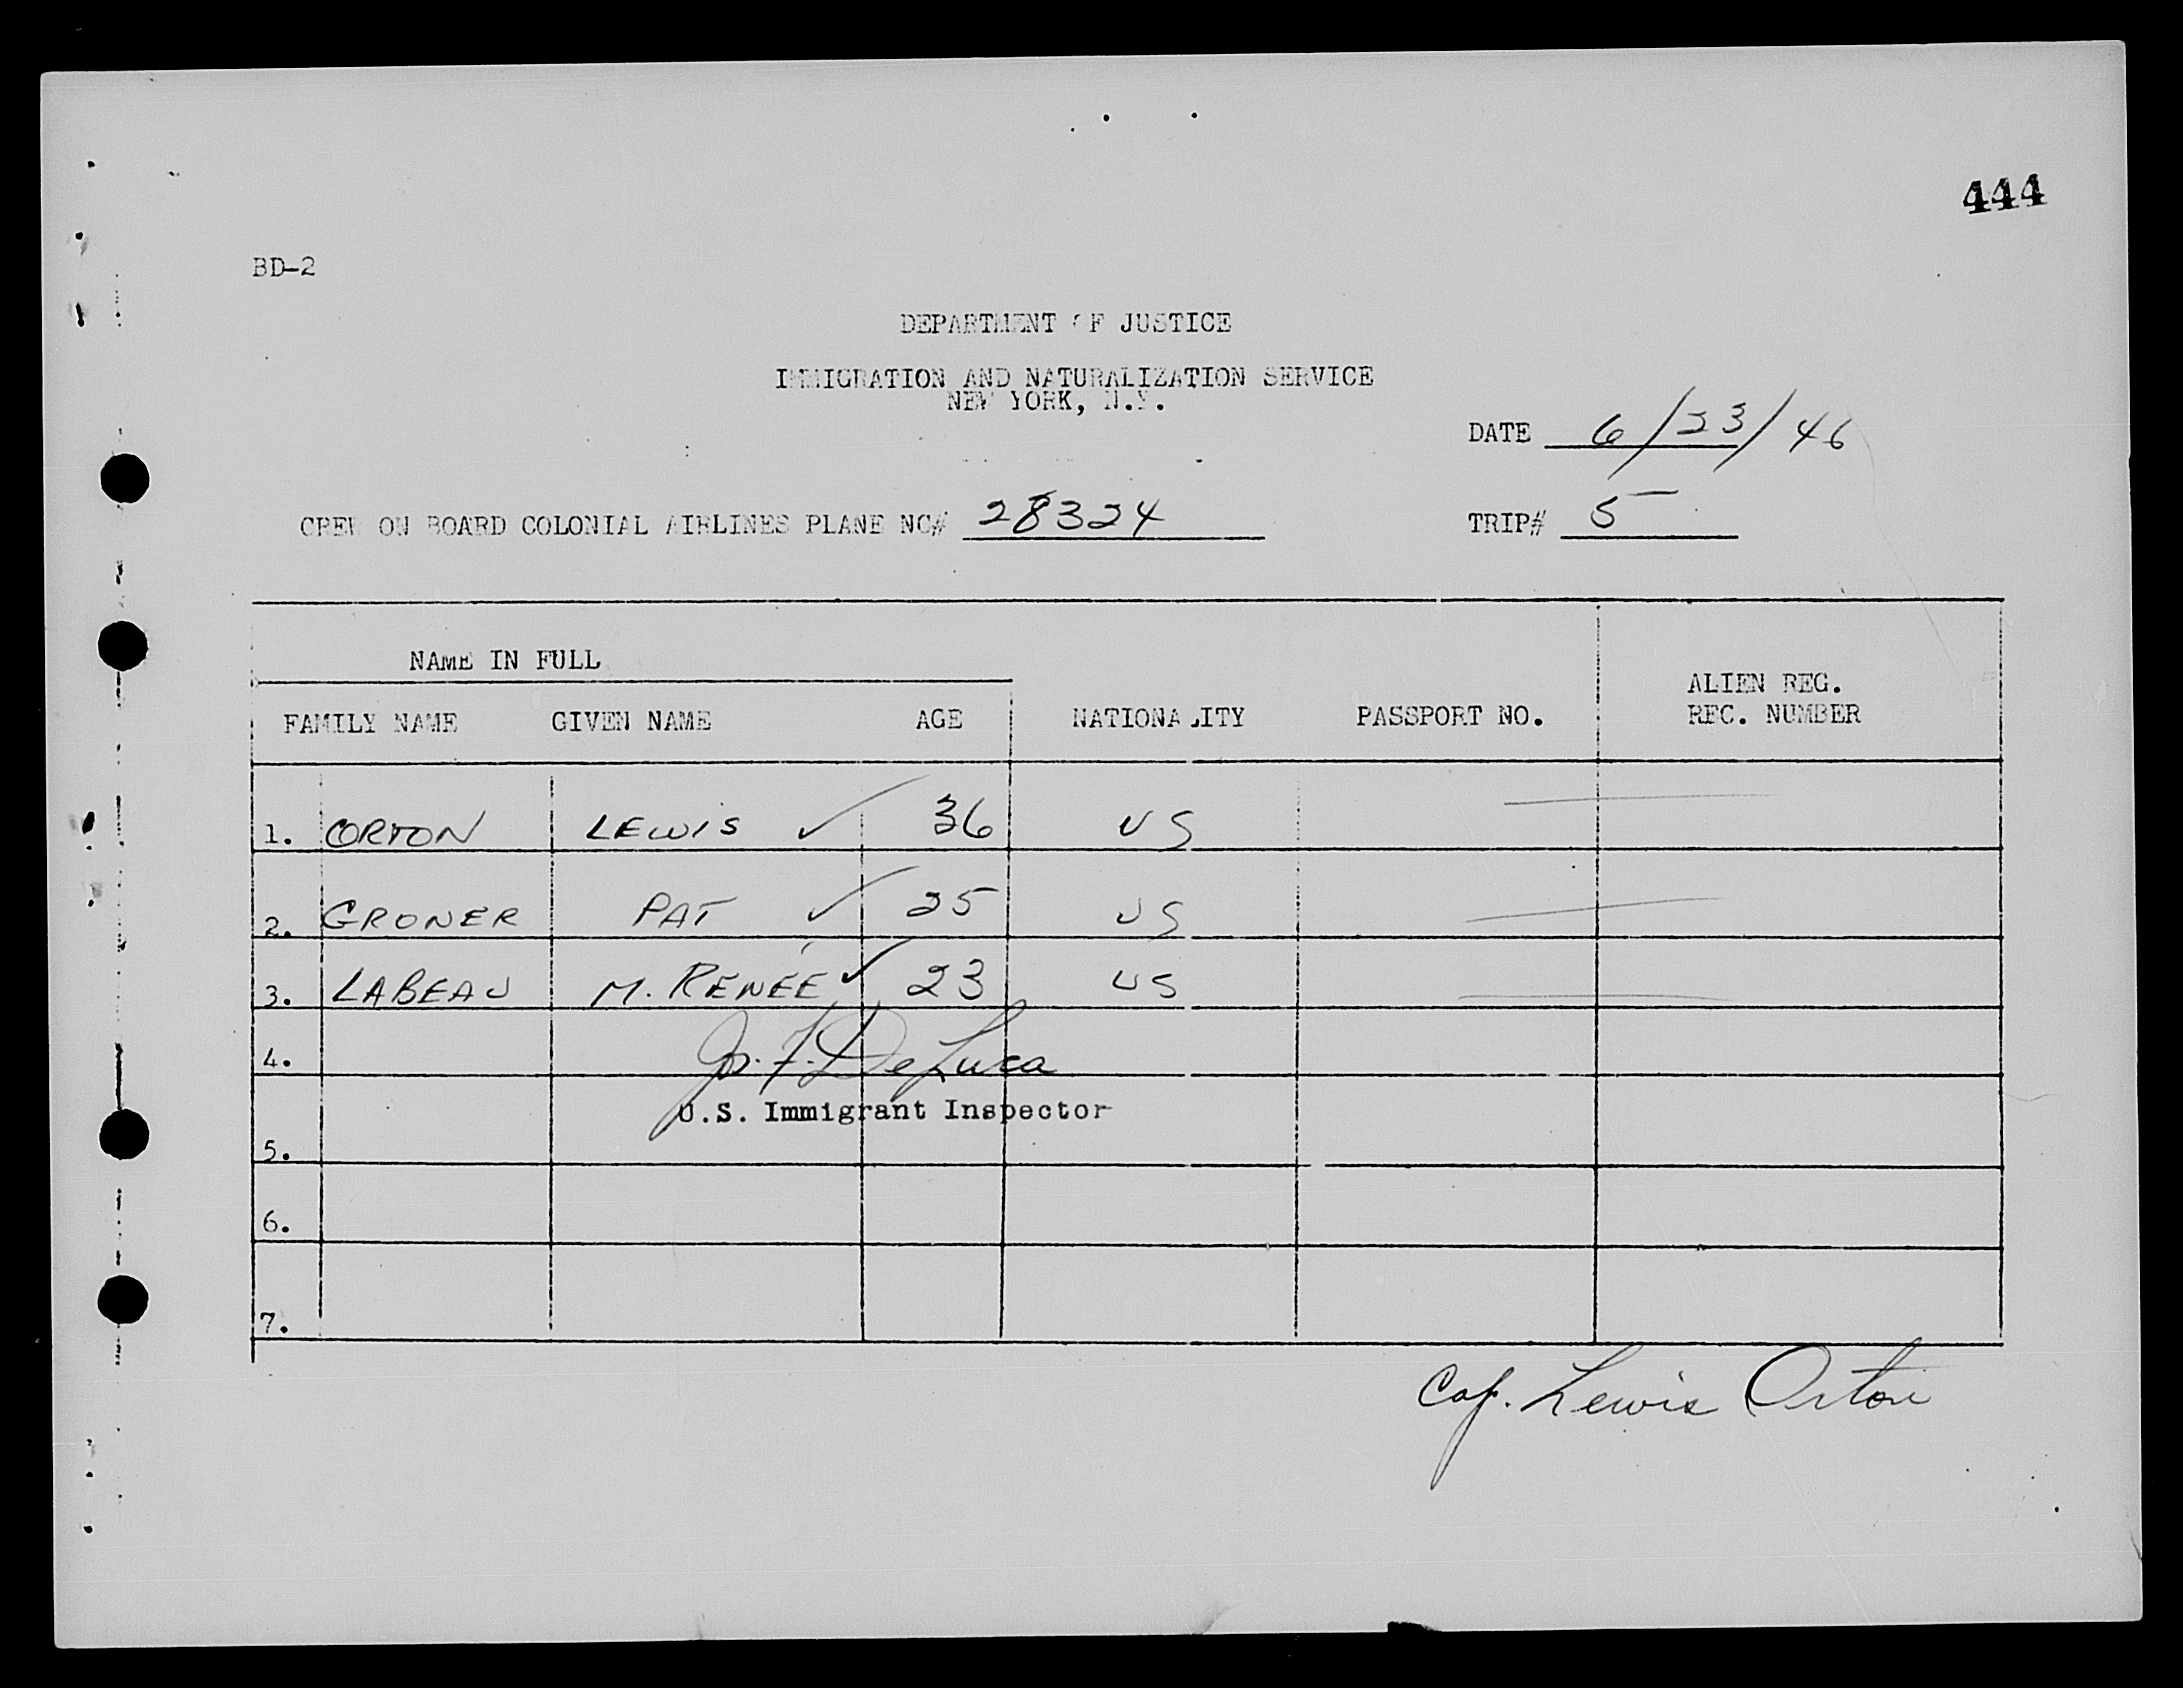 444
BD-2
DEPARTMENT OF JUSTICE
IMMIGRATION AND NATURALIZATION SERVICE
NEW YORK, N.Y.
DATE 6/23/46
CREW ON BOARD COLONIAL AIRLINES PLANE NC# 28324 TRIP# 5
NAME IN FULL
FAMILY NAME GIVEN NAME AGE NATIONALITY PASSPORT NO. ALIEN REG. REC. NUMBER
1. ORTON LEWIS ✓ 36 US —
2. GRONER PAT ✓ 25 US —
3. LABEAU M. RENÉE ✓ 23 US —
4. Jos. F. DeLuca
U.S. Immigrant Inspector
5.
6.
7.
Cap. Lewis Orton